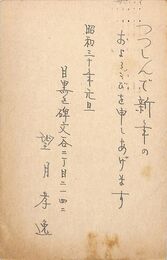 つつしんで新年の
およろこびを申しあげます
昭和三十年元旦
目黒区碑文谷二丁目二一四二
望月孝逸